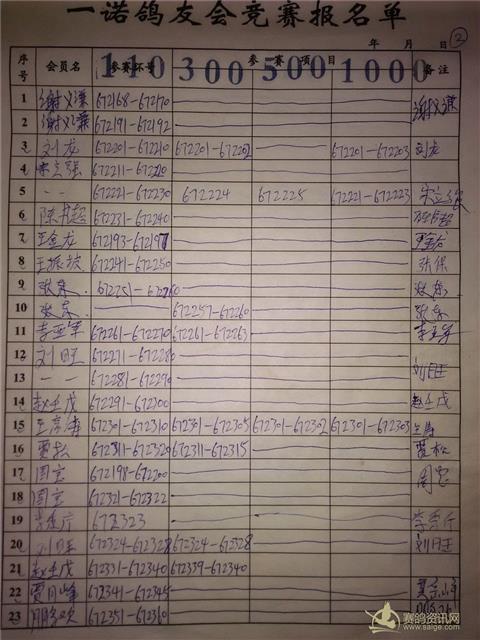 一诺鸽友会竞赛报名单
年 月 日 ②
序号 会员名 参赛环号 参赛项目 备注
110 300 500 1000
1 谢义谦 672168-672170 谢义谦
2 谢义谦 672191-672192
3 刘龙 672201-672210 672201-672202 672201-672203 刘龙
4 672211-672220
5 一一 672221-672230 672224 672225 672221-672223
6 672231-672240
7 王金龙 672193-672197
8 王振波 672241-672250 张保
9 张东 672251-672260 张东
10 张东 672257-672260 张东
11 李亚军 672261-672270 672261-672263 李亚军
12 刘旺 672271-672280
13 一一 672281-672290 刘旺
14 赵壬戊 672291-672300 赵壬戊
15 672301-672310 672301-672305 672301-672302 672301-672303
16 贾松 672311-672320 672311-672315 贾松
17 周宝 672198-672200 周宝
18 周宝 672321-672322
19 672323
20 刘旺 672324-672328 672324-672328 刘旺
21 赵壬戊 672331-672340 672339-672340
22 672341-672345
23 672351-672310
赛鸽资讯网
www.saige.com